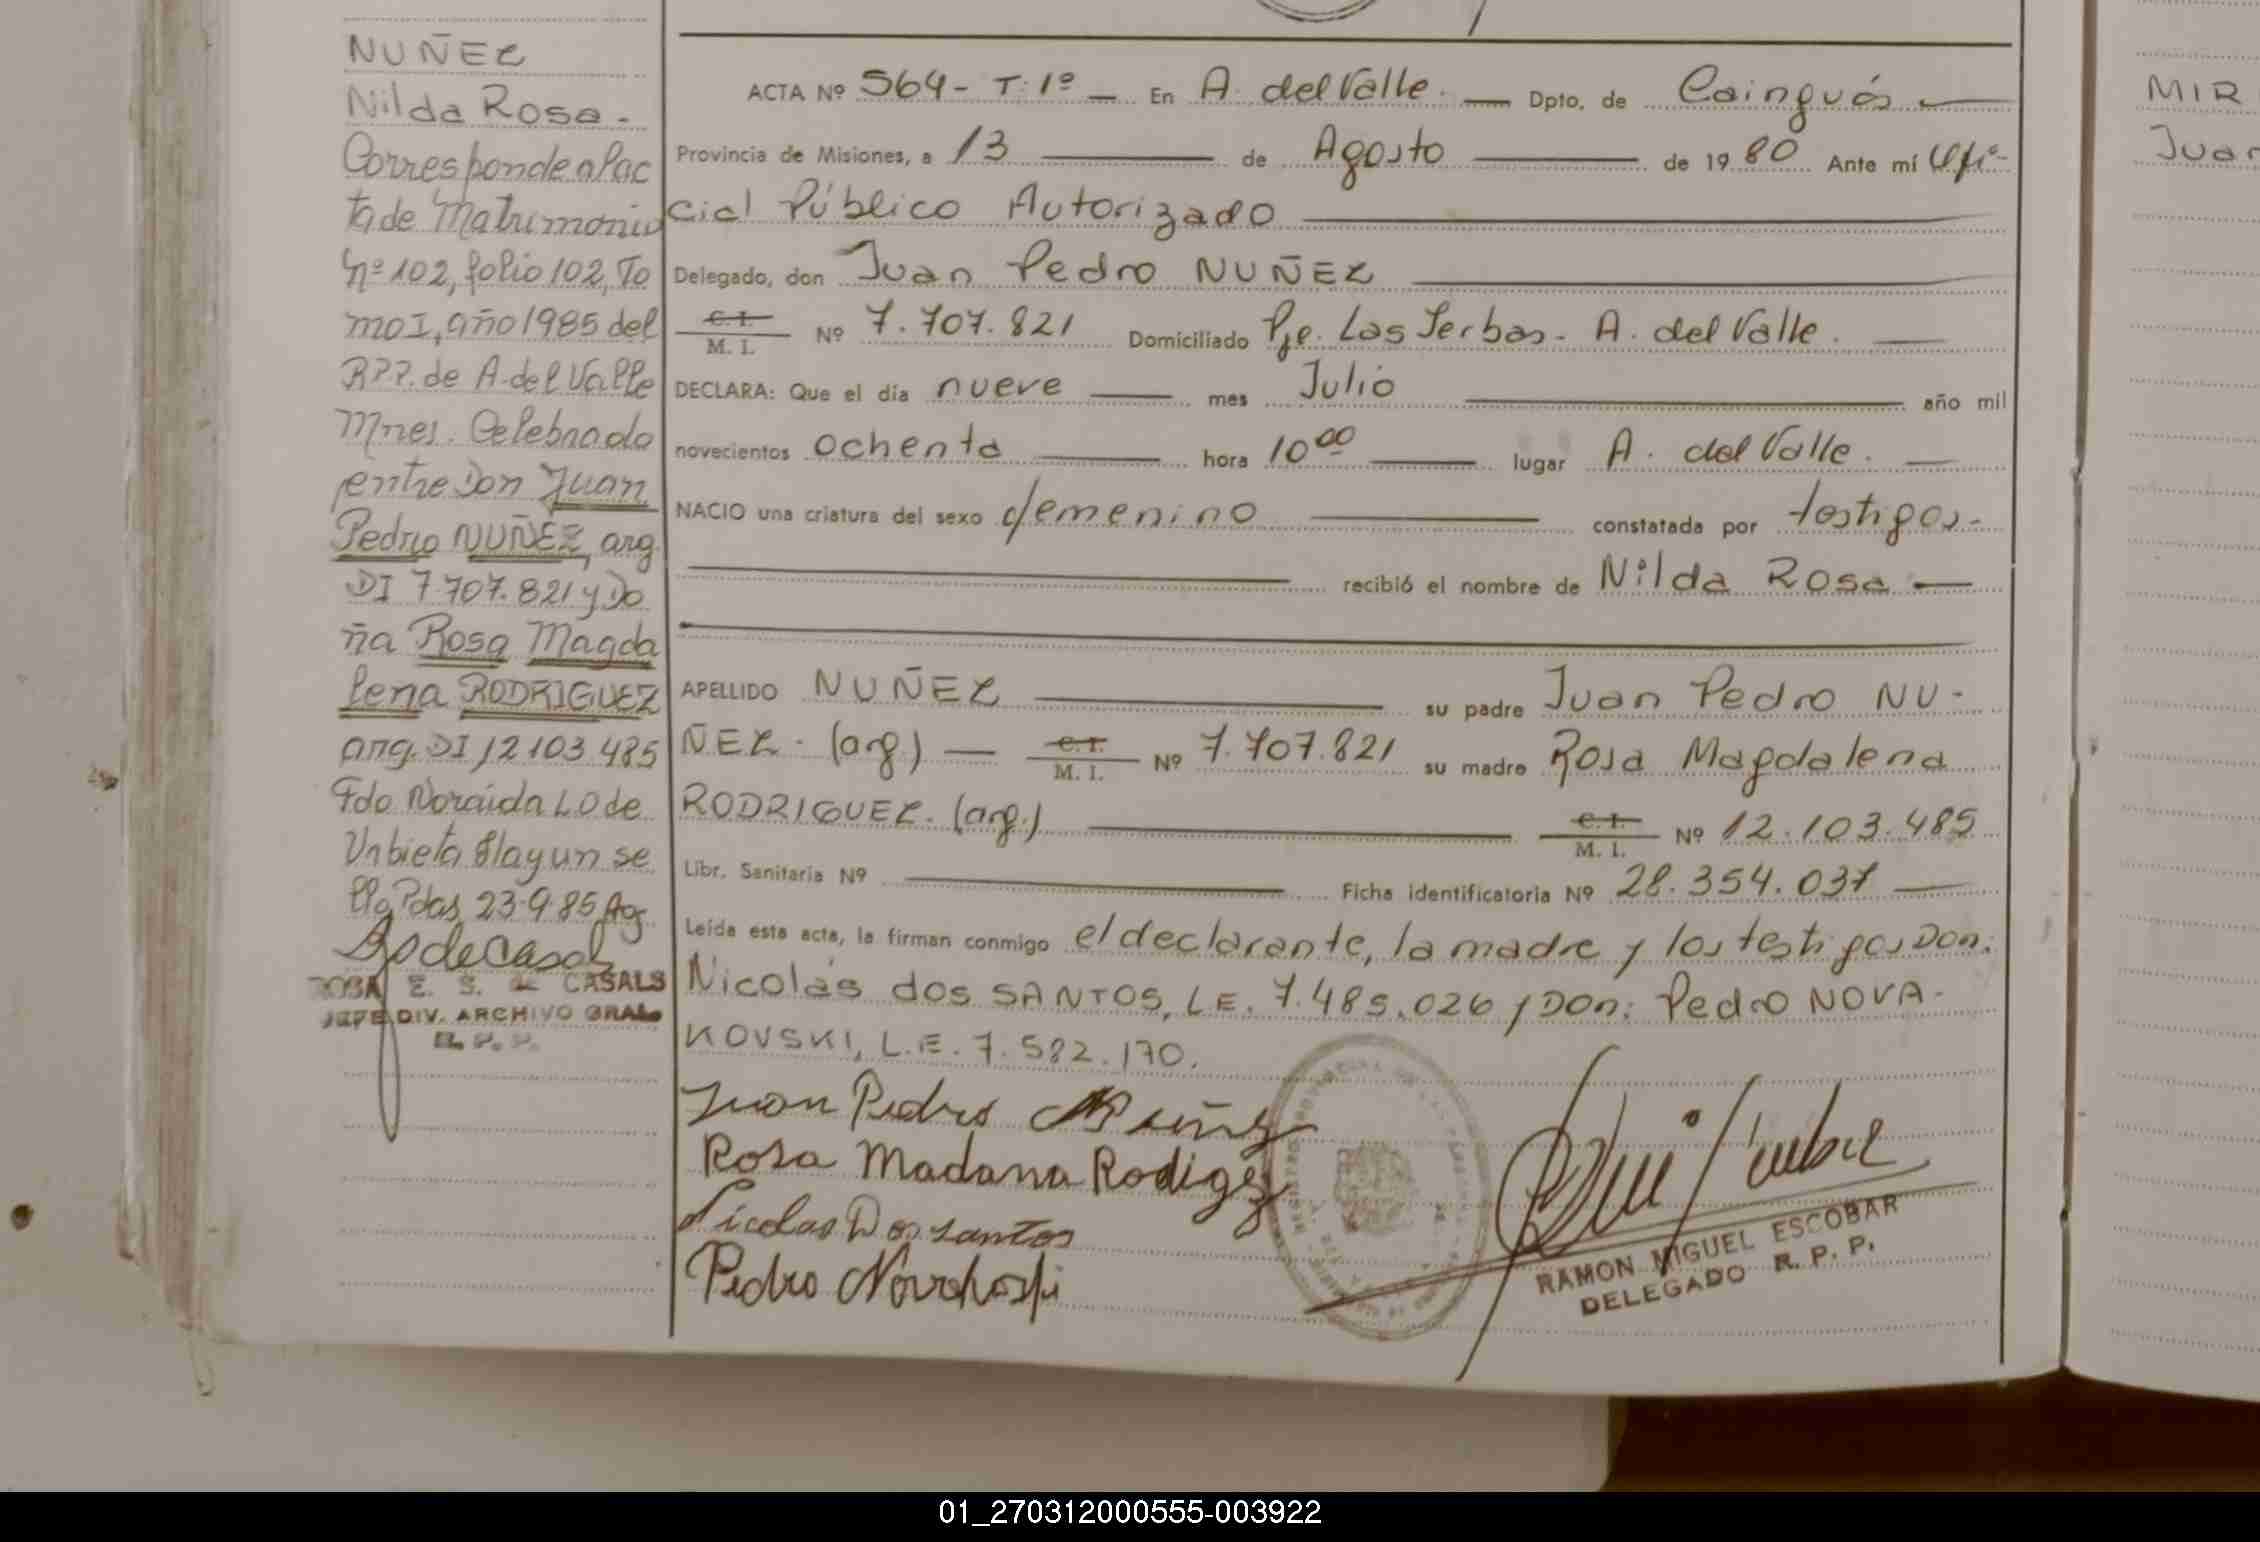 NUÑEZ
Nilda Rosa-
Corresponde al ac
ta de Matrimonio
Nº 102, folio 102, To
mo I, año 1985 del
RPP. de A. del Valle
Mnes. Celebrado
entre Don Juan
Pedro NUÑEZ, arg.
DI 7.707.821 y Do
ña Rosa Magda
lena RODRIGUEZ
arg. DI 12103.485
Fdo Noraida L.O de
Urbieta Hay un se
llo Pdas 23-9-85
ROSA E. S. de CASALS
JEFE DIV. ARCHIVO GRAL.
R. P. P.
ACTA Nº 564- T. 1º — En A. del Valle. — Dpto. de Cainguás —
Provincia de Misiones, a 13 — de Agosto — de 1980 Ante mí Ofi-
cial Público Autorizado
Delegado, don Juan Pedro NUÑEZ
C. I.
M. I. Nº 7.707.821 Domiciliado Pje. Las Yerbas- A. del Valle. —
DECLARA: Que el día nueve — mes Julio — año mil
novecientos ochenta — hora 10 00 — lugar A. del Valle. —
NACIO una criatura del sexo femenino — constatada por testigos-
— recibió el nombre de Nilda Rosa —
APELLIDO NUÑEZ — su padre Juan Pedro NU-
ÑEZ- (arg.) — C. I.
M. I. Nº 7.707.821 su madre Rosa Magdalena
RODRIGUEZ- (arg.) — C. I.
M. I. Nº 12.103.485
Libr. Sanitaria Nº — Ficha identificatoria Nº 28.354.037 —
Leída esta acta, la firman conmigo el declarante, la madre y los testigos Don:
Nicolás dos SANTOS, L.E. 7.485.026 y Don: Pedro NOVA-
KOVSKI, L.E. 7.582.170.
Juan Pedro Nuñez
Rosa Madana Rodigez
Nicolas Dos santos
Pedro Novakoski
RAMON MIGUEL ESCOBAR
DELEGADO R. P. P.
MIR
Juan
01_270312000555-003922